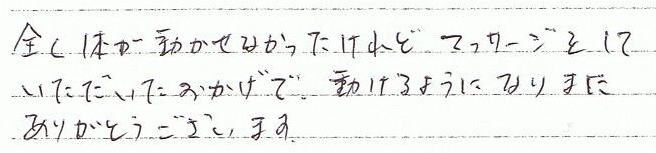 全く体が動かせなかったけれど マッサージをして
いただいたおかげで、動けるようになりました
ありがとうございます